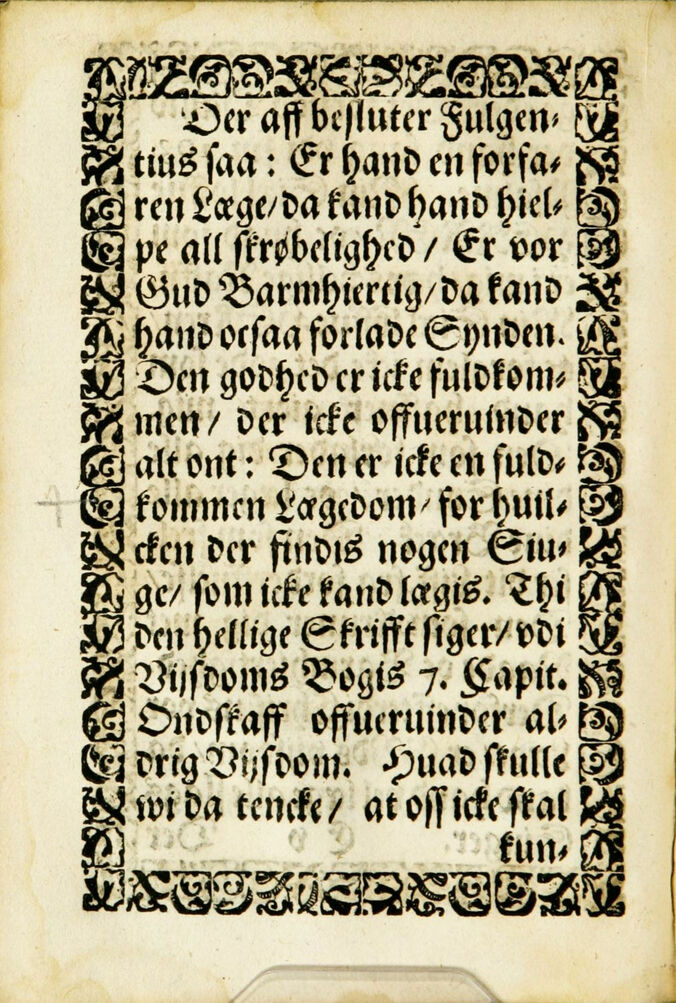 Der aff besluter Fulgen-
tius saa: Er hand en forfa-
ren Læge/ da kand hand hiel-
pe all skrøbelighed / Er vor
Gud Barmhiertig/ da kand
hand ocsaa forlade Synden.
Den godhed er icke fuldkom-
men/ der icke offueruinder
alt ont: Den er icke en fuld-
kommen Lægedom/ for huil-
cken der findis nogen Siu-
ge/ som icke kand lægis. Thi
den hellige Skrifft siger/ vdi
Vijsdoms Bogis 7. Capit.
Ondskaff offueruinder al-
drig Vijsdom. Huad skulle
wi da tencke/ at oss icke skal
kun-